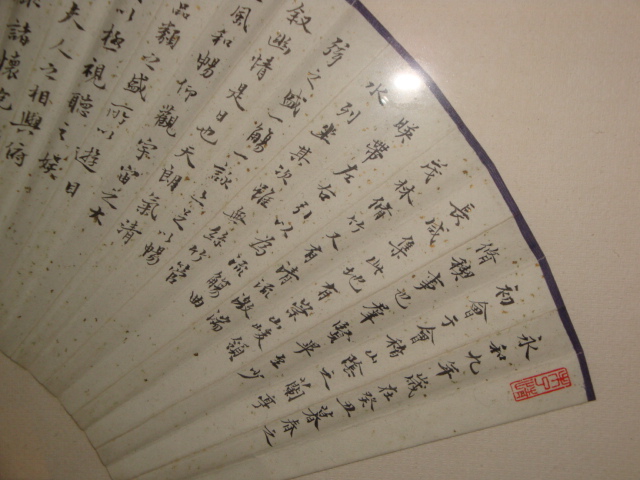 永和九年歲在癸丑暮春之
初會于會稽山陰之蘭亭
脩禊事也羣賢畢至少
長咸集此地有崇山峻領
茂林脩竹又有清流激湍
暎帶左右引以為流觴曲
水列坐其次雖無絲竹管
弦之盛一觴一詠亦足以暢
叙幽情是日也天朗氣清
風和暢仰觀宇宙之大
品類之盛所以遊目
以極視聽之娛
夫人之相與俯
諸懷